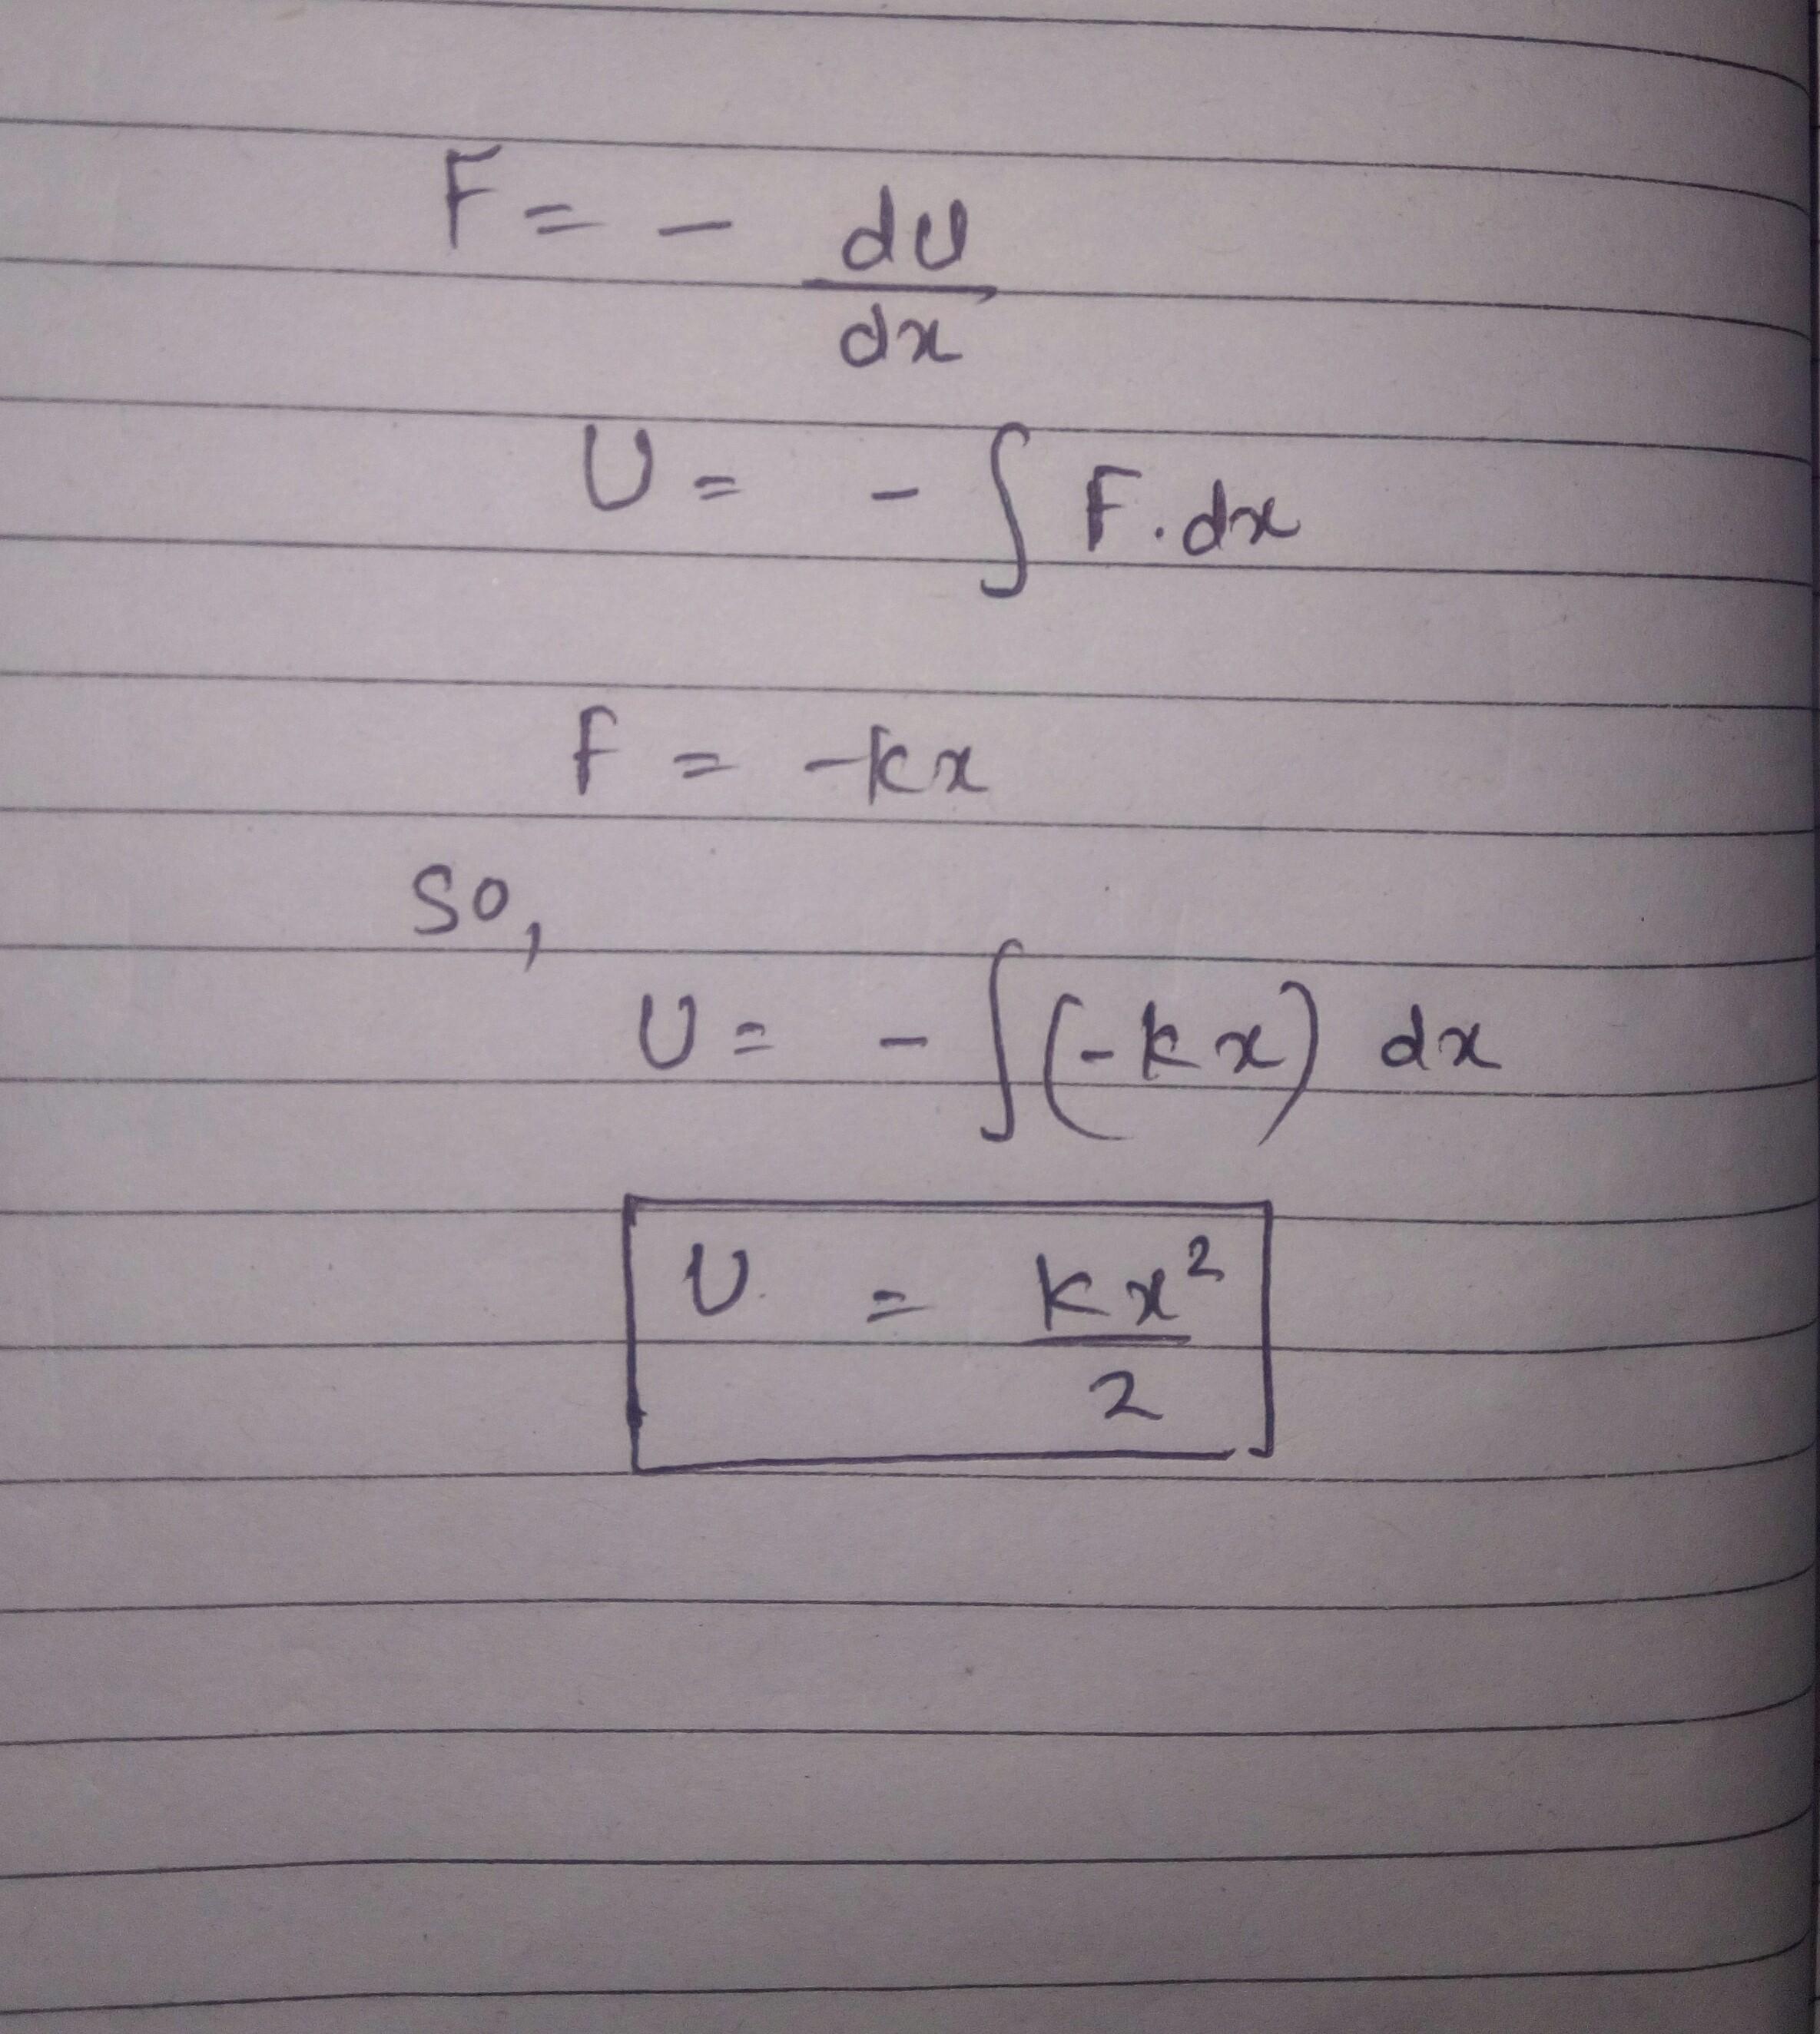 F = - dU/dx
U = - ∫ F.dx
F = -kx
so,
U = - ∫(-kx) dx
U = kx²/2